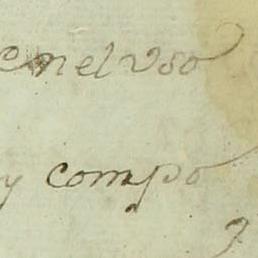 en el Vso
y compo